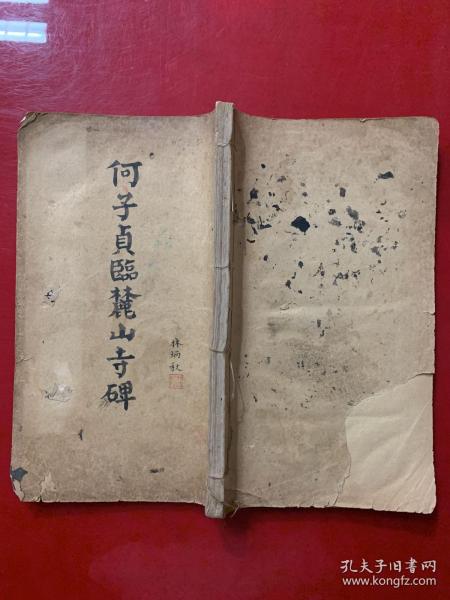 何子貞臨麓山寺碑
林炳秋
孔夫子旧书网
www.kongfz.com